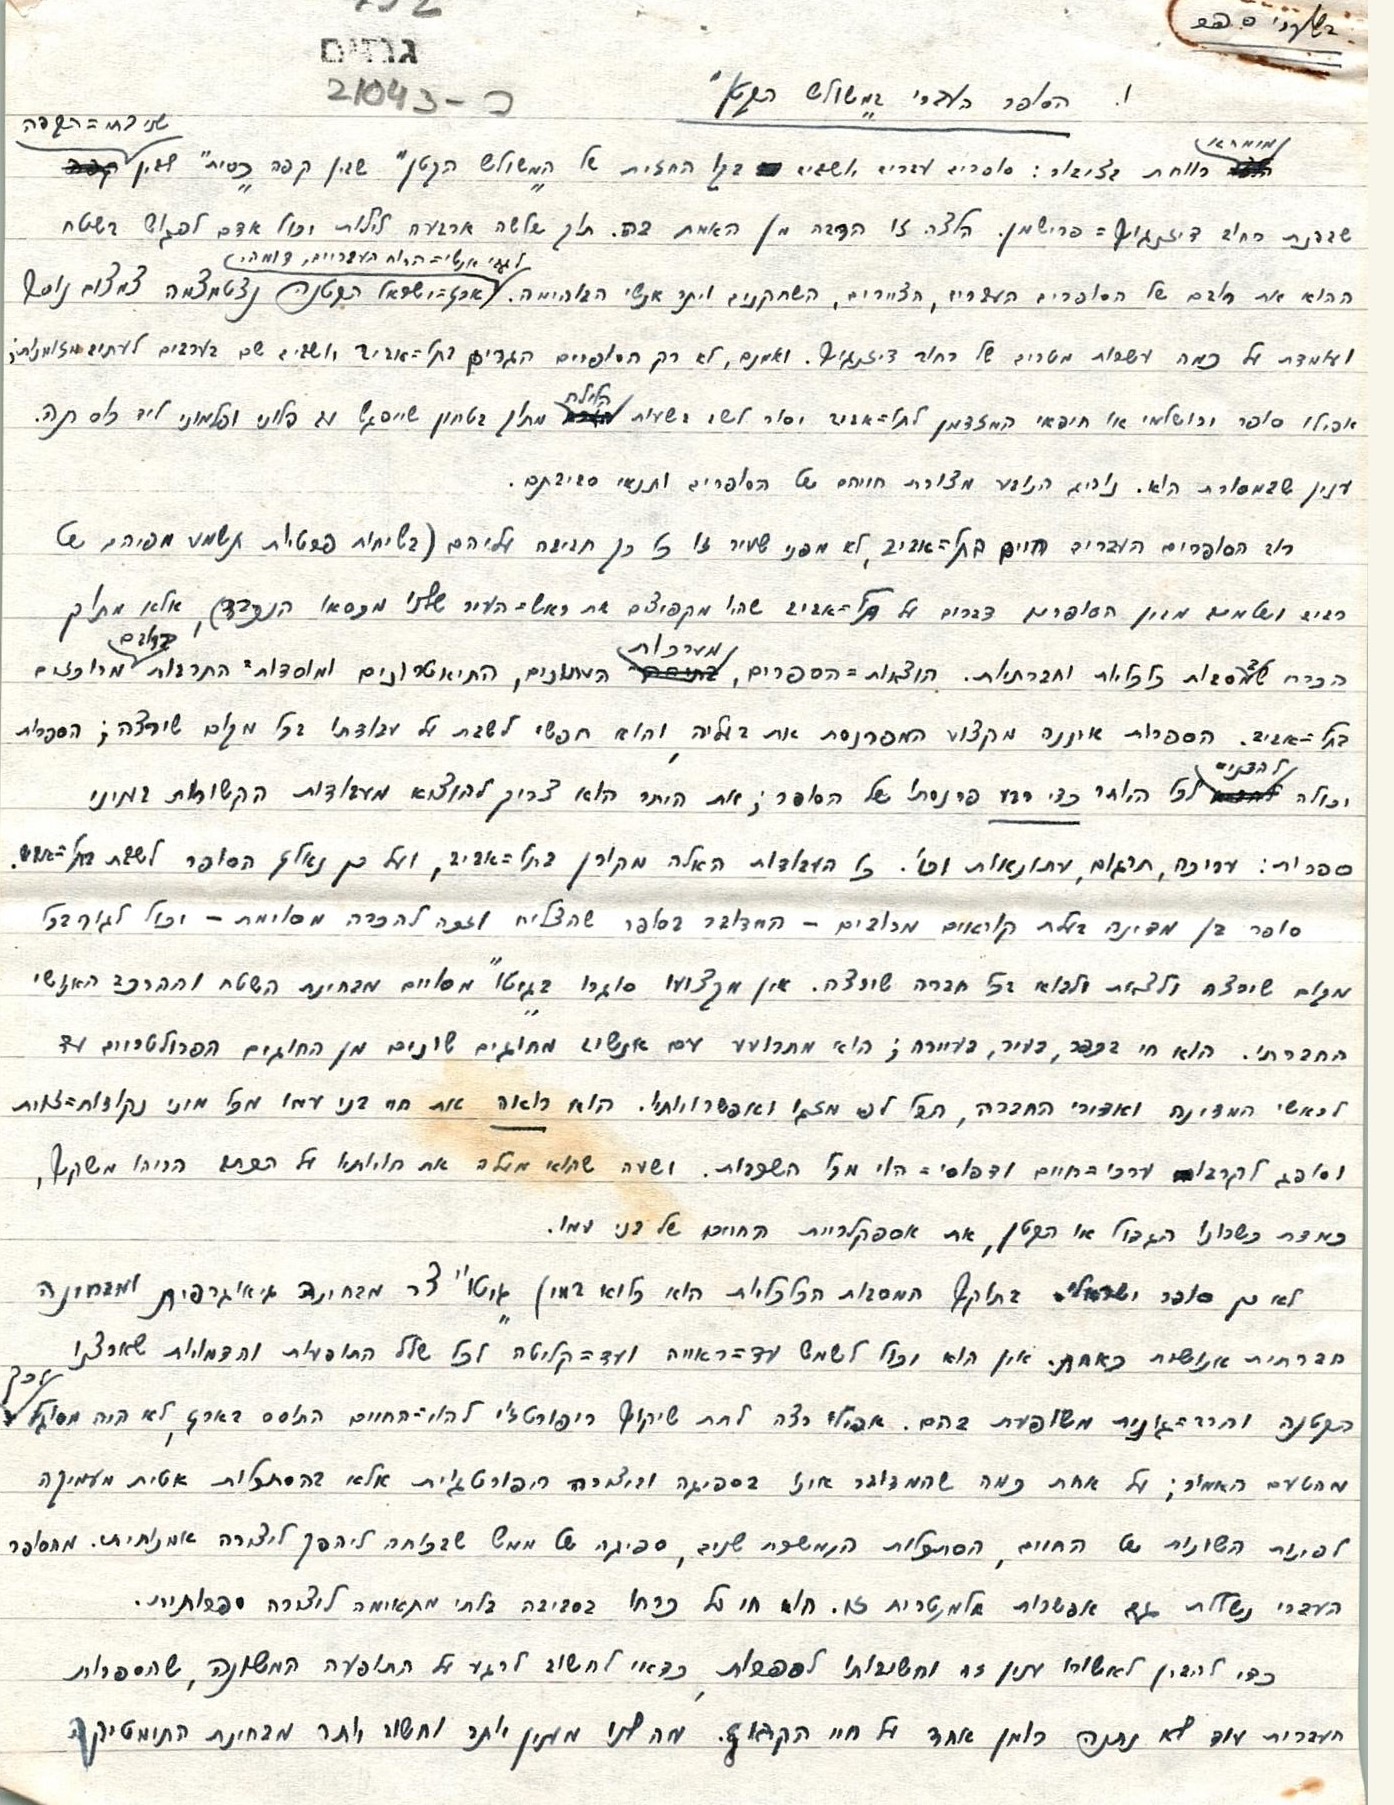 בשערי ספר
גנזים
21043-כ
1. הסופר העברי ב"משולש הקטן"
מימרא
שני בתי=הקפה
רווחת בציבור: סופרים עברים יושבים בקו החזית של "המשולש הקטן" שבין קפה "כסית" לבין
שבפנת רחוב דיזנגוף=פרישמן. הלצה זו הרבה מן האמת בה. תוך שלשה ארבעה לילות יכול אדם לפגוש בשטח
לגבי אנשי=הרוח העבריים, דומה,
ההוא את רובם של הסופרים העברים, הציירים, השחקנים ויתר אנשי הבוהימה. ארץ=ישראל הקטנה נצטמצמה צמצום נוסף
ועומדת על כמה עשרות מטרים של רחוב דיזנגוף. ואמנם, לא רק הסופרים הגרים בתל=אביב יושבים שם בערבים לעתים מזומנות;
הלילה
אפילו סופר ירושלמי או חיפאי המזדמן לתל=אביב יסור לשם בשעות מתוך בטחון שייפגש עם פלוני ופלמוני ליד כוס תה.
ענין שבמסורת הוא. נוהג הנובע מצורת חייהם של הסופרים ותנאי סביבתם.
רוב הסופרים העברים חיים בתל=אביב, לא מפני שעיר זו כל כך חביבה עליהם (בשיחות פרטיות תשמע מפיהם של
רבים וטובים מבין הסופרים דברים על תל=אביב שהיו מקפיצים את ראש=העיר שלנו מכסאו הנכבד), אלא מתוך
מערכות
ברובם
הכרח של מסבות כלכליות וחברתיות. הוצאות=הספרים, העתונים, התיאטרונים ומוסדות=התרבות מרוכזים
בתל=אביב. הספרות איננה מקצוע המפרנסת את בעליה, והוא חפשי לשבת על עבודתו בכל מקום שירצה; הספרות
להכניס
יכולה לכל היותר כדי רבע פרנסתו של הסופר; את היתר הוא צריך להוציא מעבודות הקשורות במיני
ספרות: עריכה, תרגום, עתונאות וכו'. כל העבודות האלה מקורן בתל=אביב, ועל כן נאלץ הסופר לשבת בתל=אביב.
סופר בן מדינה בעלת קוראים מרובים - המדובר בסופר שהצליח וזכה להכרה מסוימת - יכול לגור בכל
מקום שירצה ולצאת ולבוא בכל חברה שירצה. אין מקצועו סוגרו ב"גיטו" מסויים מבחינת השטח וההרכב האנושי
החברתי. הוא חי בכפר, בעיר, בעיירה; הוא מתרועע עם אנשים מחוגים שונים מן החוגים הפרולטריים עד
לראשי המדינה ואדירי החברה, הכל לפי מזגו ואפשרויותיו. הוא רואה את חיי בני עמו מכל מיני נקודות=זוית
וסופג לקרבו ערכי=חיים ודפוסי=הוי מכל השכבות. ושעה שהוא מעלה את חוויותיו על הכתב הריהו משקף,
כמדת כשרונו הגדול או הקטן, את אספקלריית החיים של בני עמו.
לא כן סופר ישראלי. בתוקף המסבות הכלכליות הוא כלוא במין "גיטו" צר מבחינה גיאוגרפית ומבחינה
חברתית אנושית כאחת. אין הוא יכול לשמש עד=ראייה ועד=קליטה לכל שלל התופעות והדמויות שארצנו
לכך
הקטנה והרב=גונית משופעת בהם. אפילו רצה לתת שיקוף ריפורטז'י להוי=החיים התוסס בארץ, לא היה מסוגל
מהטעם האמור; על אחת כמה שהמדובר אינו בספיגה וביצירה ריפורטג'ית אלא בהסתכלות אטית מעמיקה
לפינות השונות של החיים, הסתכלות הנמשכת שנים, ספיגה של ממש שבכוחה ליהפך ליצירה אמנותית. מהסופר
העברי נשללת אפשרות אלמנטרית זו. הוא חי על כרחו בסביבה בלתי מתאימה ליצירה ספרותית.
כדי להבין לאשורו ענין זה וחשיבותו לספרות, כדאי לחשוב לרגע על התופעה המשונה, שהספרות
העברית עוד לא נתנה רומן אחד על חיי הקבוץ. מה לנו מענין יותר וחשוב יותר מבחינת התימטיקה